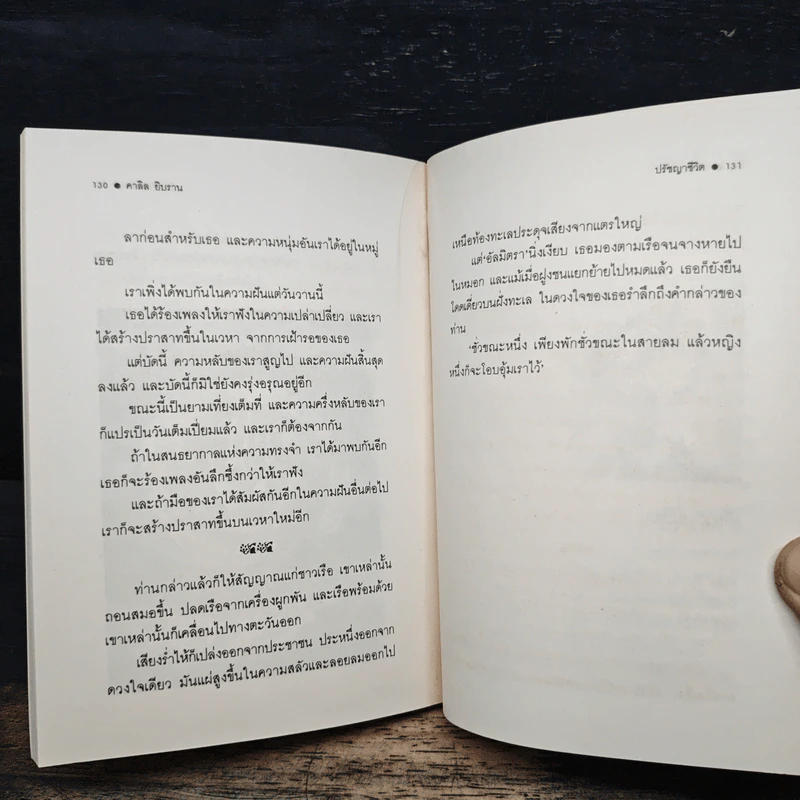 130 ● คาลิล ยิบราน
ลาก่อนสำหรับเธอ และความหนุ่มอันเราได้อยู่ในหมู่
เธอ
เราเพิ่งได้พบกันในความฝันแต่วันวานนี้
เธอได้ร้องเพลงให้เราฟังในความเปล่าเปลี่ยว และเรา
ได้สร้างปราสาทขึ้นในเวหา จากการเฝ้ารอของเธอ
แต่บัดนี้ ความหลับของเราสูญไป และความฝันสิ้นสุด
ลงแล้ว และบัดนี้ก็มิใช่ยังคงรุ่งอรุณอยู่อีก
ขณะนี้เป็นยามเที่ยงเต็มที่ และความครึ่งหลับของเรา
ก็แปรเป็นวันเต็มเปี่ยมแล้ว และเราก็ต้องจากกัน
ถ้าในสนธยากาลแห่งความทรงจำ เราได้มาพบกันอีก
เธอก็จะร้องเพลงอันลึกซึ้งกว่าให้เราฟัง
และถ้ามือของเราได้สัมผัสกันอีกในความฝันอื่นต่อไป
เราก็จะสร้างปราสาทขึ้นบนเวหาใหม่อีก
ท่านกล่าวแล้วก็ให้สัญญาณแก่ชาวเรือ เขาเหล่านั้น
ถอนสมอขึ้น ปลดเรือจากเครื่องผูกพัน และเรือพร้อมด้วย
เขาเหล่านั้นก็เคลื่อนไปทางตะวันออก
เสียงร่ำไห้ก็เปล่งออกจากประชาชน ประหนึ่งออกจาก
ดวงใจเดียว มันแผ่สูงขึ้นในความสลัวและลอยลมออกไป
ปรัชญาชีวิต ● 131
เหนือท้องทะเลประดุจเสียงจากแตรใหญ่
แต่'อัลมิตรา'นิ่งเงียบ เธอมองตามเรือจนจางหายไป
ในหมอก และแม้เมื่อฝูงชนแยกย้ายไปหมดแล้ว เธอก็ยังยืน
โดดเดี่ยวบนฝั่งทะเล ในดวงใจของเธอรำลึกถึงคำกล่าวของ
ท่าน
'ชั่วขณะหนึ่ง เพียงพักชั่วขณะในสายลม แล้วหญิง
หนึ่งก็จะโอบอุ้มเราไว้'